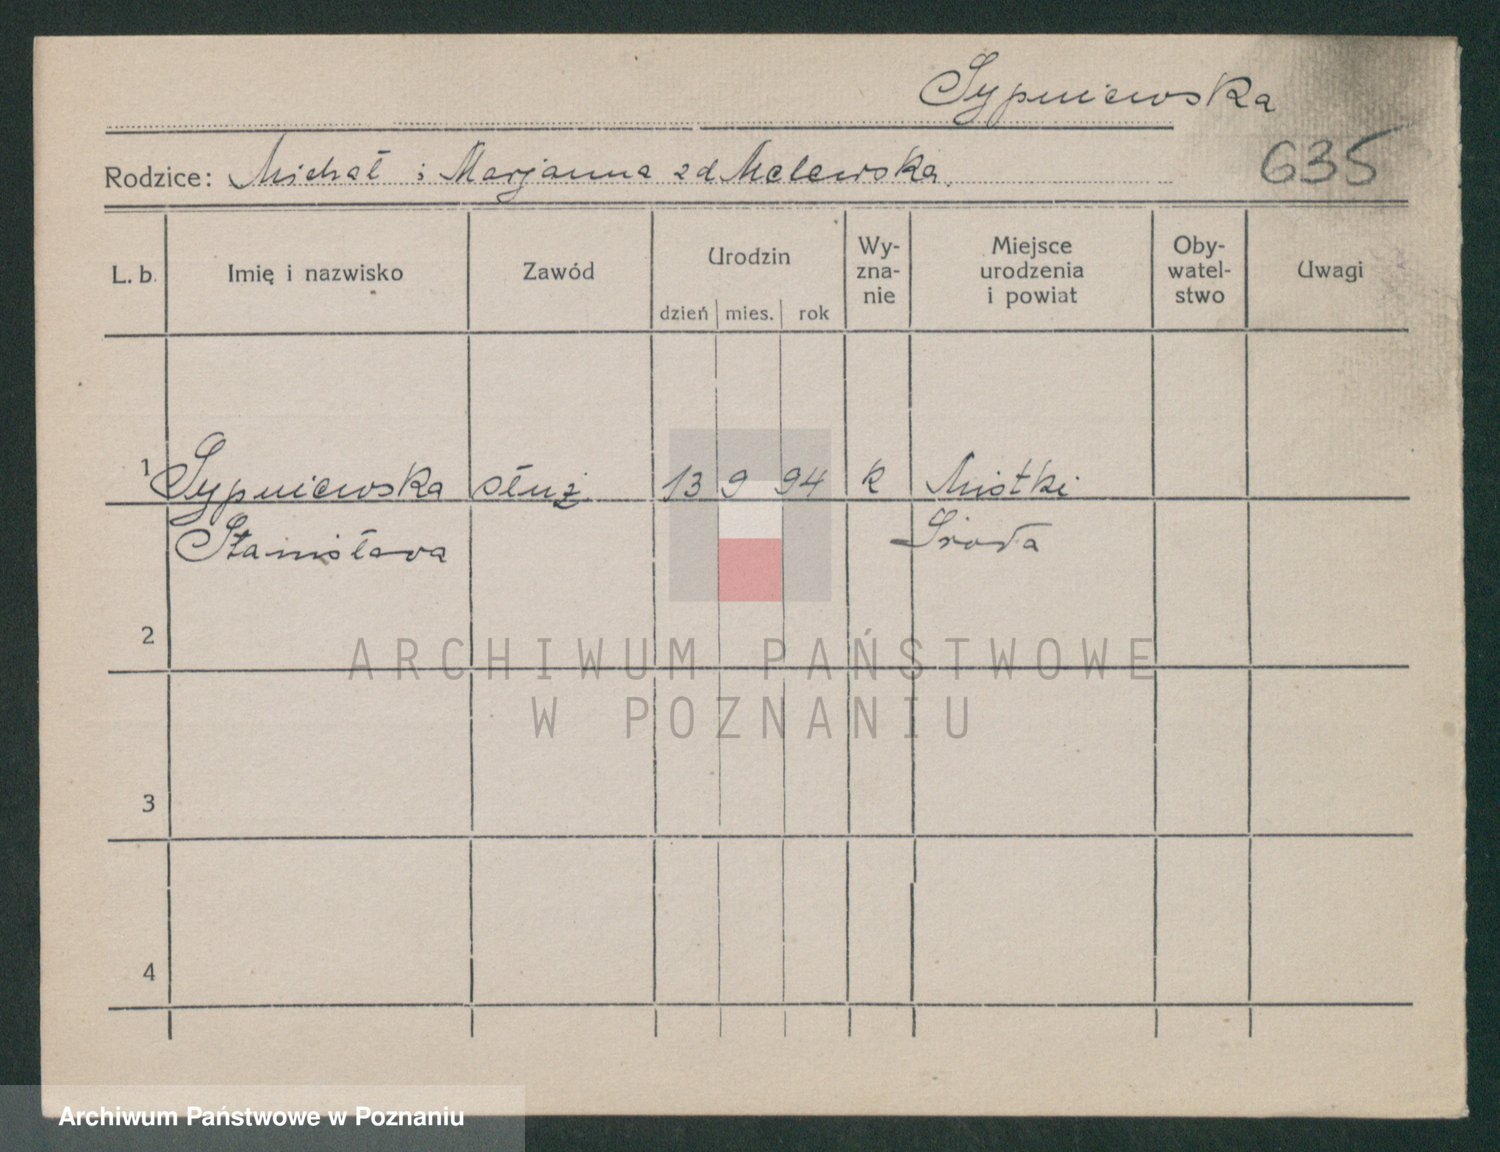 Sypniewska
Rodzice: Michał i Marjanna zd Melewska.
635
L. b. Imię i nazwisko Zawód Urodzin dzień mies. rok Wy-zna-nie Miejsce urodzenia i powiat Oby-watel-stwo Uwagi
1 Sypniewska służ. 13 9 94 k Mistki
Stanisława Środa
2
ARCHIWUM PAŃSTWOWE
W POZNANIU
3
4
Archiwum Państwowe w Poznaniu